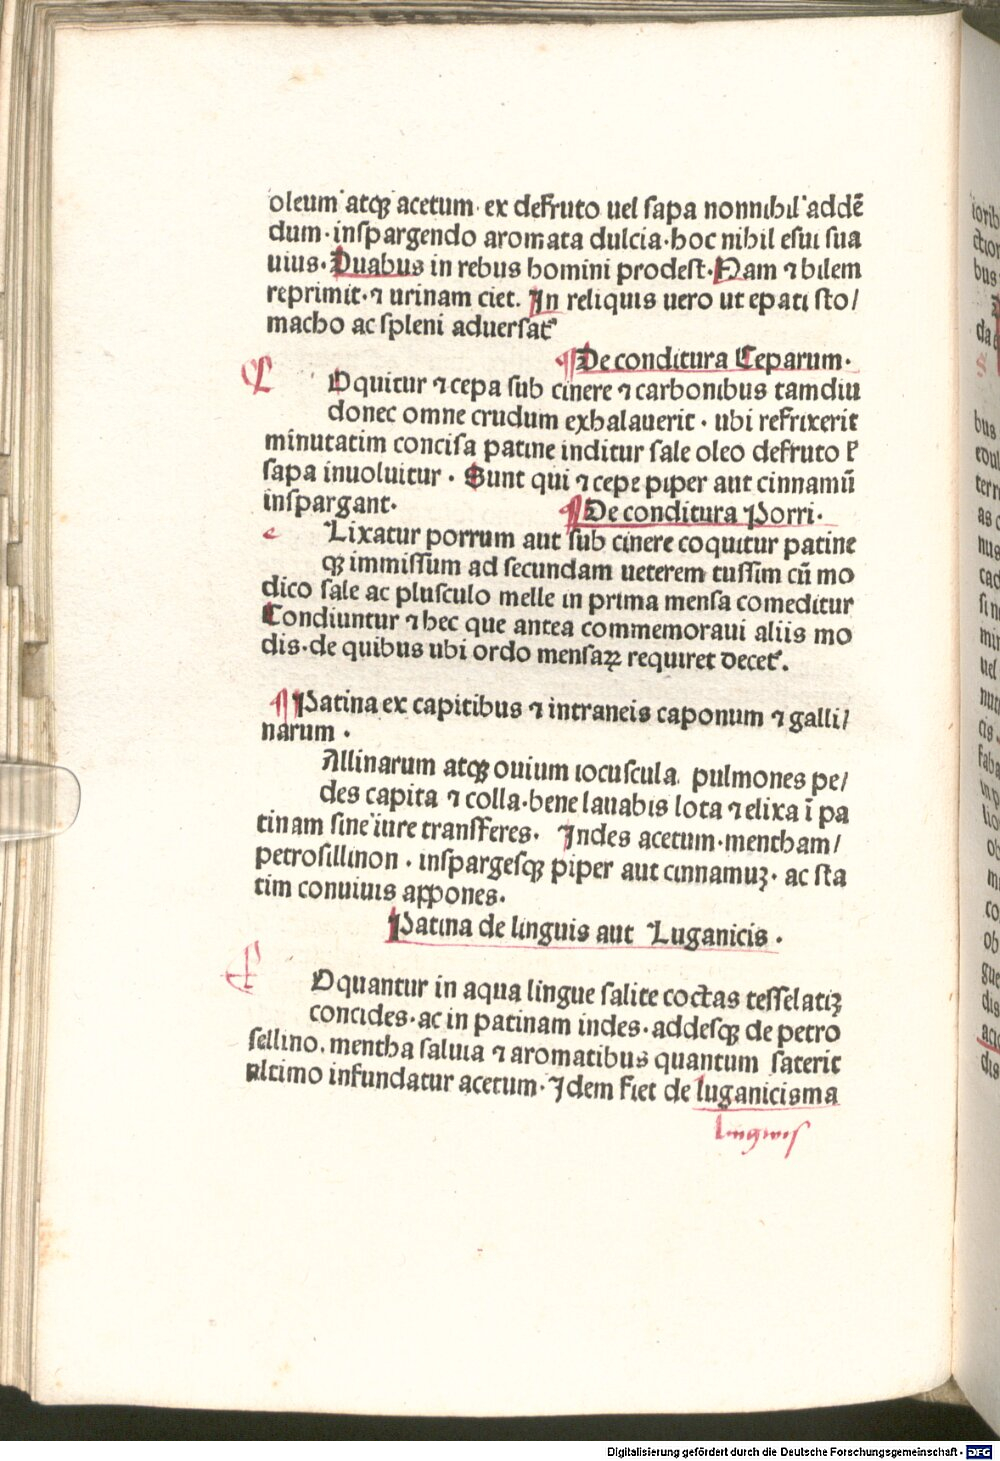 oleum atqꝫ acetum· ex defruto uel sapa nonnihil addē
dum·inspargendo aromata dulcia·hoc nihil esui sua
uius·Duabus in rebus homini prodest·Nam ⁊ bilem
reprimit·⁊ urinam ciet. In reliquis uero ut epati sto/
macho ac spleni aduersat᷑
¶De conditura Ceparum·
C Oquitur ⁊ cepa sub cinere ⁊ carbonibus tamdiu
donec omne crudum exhalauerit · ubi refrixerit
minutatim concisa patine inditur sale oleo defruto ł
sapa inuoluitur · Sunt qui ⁊ cepe piper aut cinnamū
inspargant·
¶De conditura Porri·
e Lixatur porrum aut sub cinere coquitur patine
qꝫ immissum ad secundam ueterem tussim cū mo
dico sale ac plusculo melle in prima mensa comeditur
Condiuntur ⁊ hec que antea commemoraui aliis mo
dis·de quibus ubi ordo mensaꝝ requiret decet᷑.
¶Patina ex capitibus ⁊ intraneis caponum ⁊ galli/
narum ·
Allinarum atqꝫ ouium iocuscula pulmones pe/
des capita ⁊ colla·bene lauabis lota ⁊ elixa ī pa
tinam sine iure transferes· Indes acetum·mentham/
petrosillinon · inspargesqꝫ piper aut cinnamuꝫ· ac sta
tim conuiuis appones·
Patina de linguis aut Luganicis ·
C Oquantur in aqua lingue salite coctas tesselatiꝫ
concides·ac in patinam indes·addesqꝫ de petro
sellino.mentha saluia ⁊ aromatibus quantum saterit
ultimo infundatur acetum·Idem fiet de luganicisma
lingwis
ioribꝰ
ction
bus
da
S
bus
as
nus
cad
mit
uel
cis
faba
in
ob
co
ob
gue
dis
acc
dis
Digitalisierung gefördert durch die Deutsche Forschungsgemeinschaft · DFG